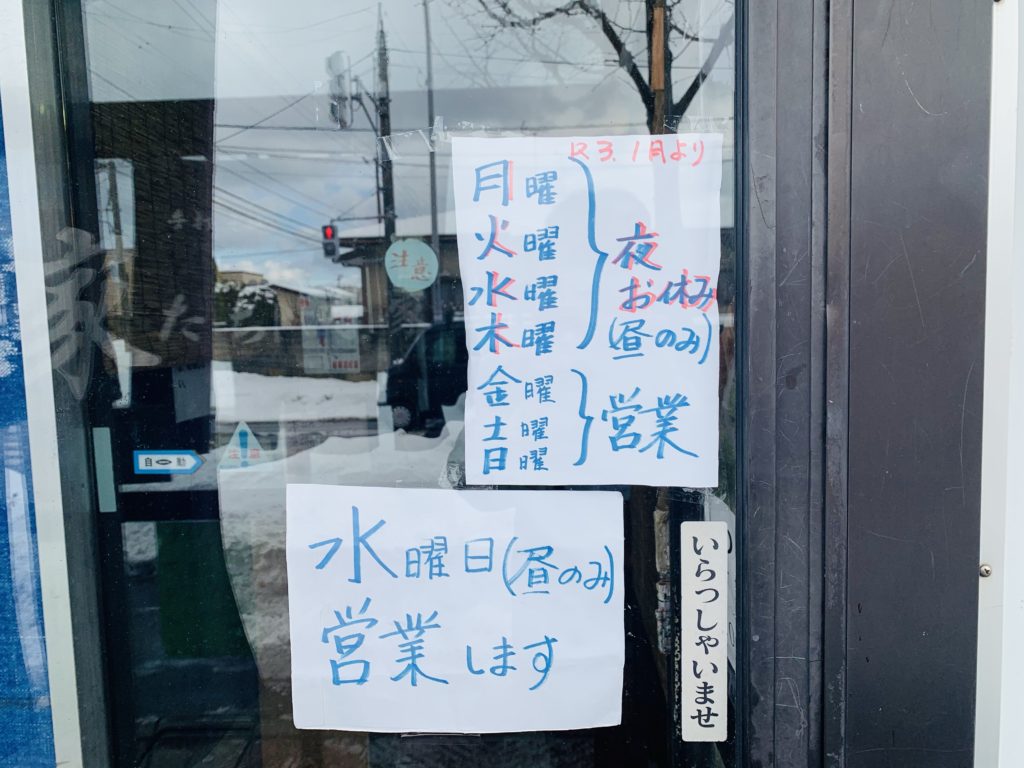 R3.1月より
月曜
火曜
水曜
木曜
夜
お休み
(昼のみ)
金曜
土曜
日曜
営業
水曜日(昼のみ)
営業します
いらっしゃいませ
注意
自動
注意
家た